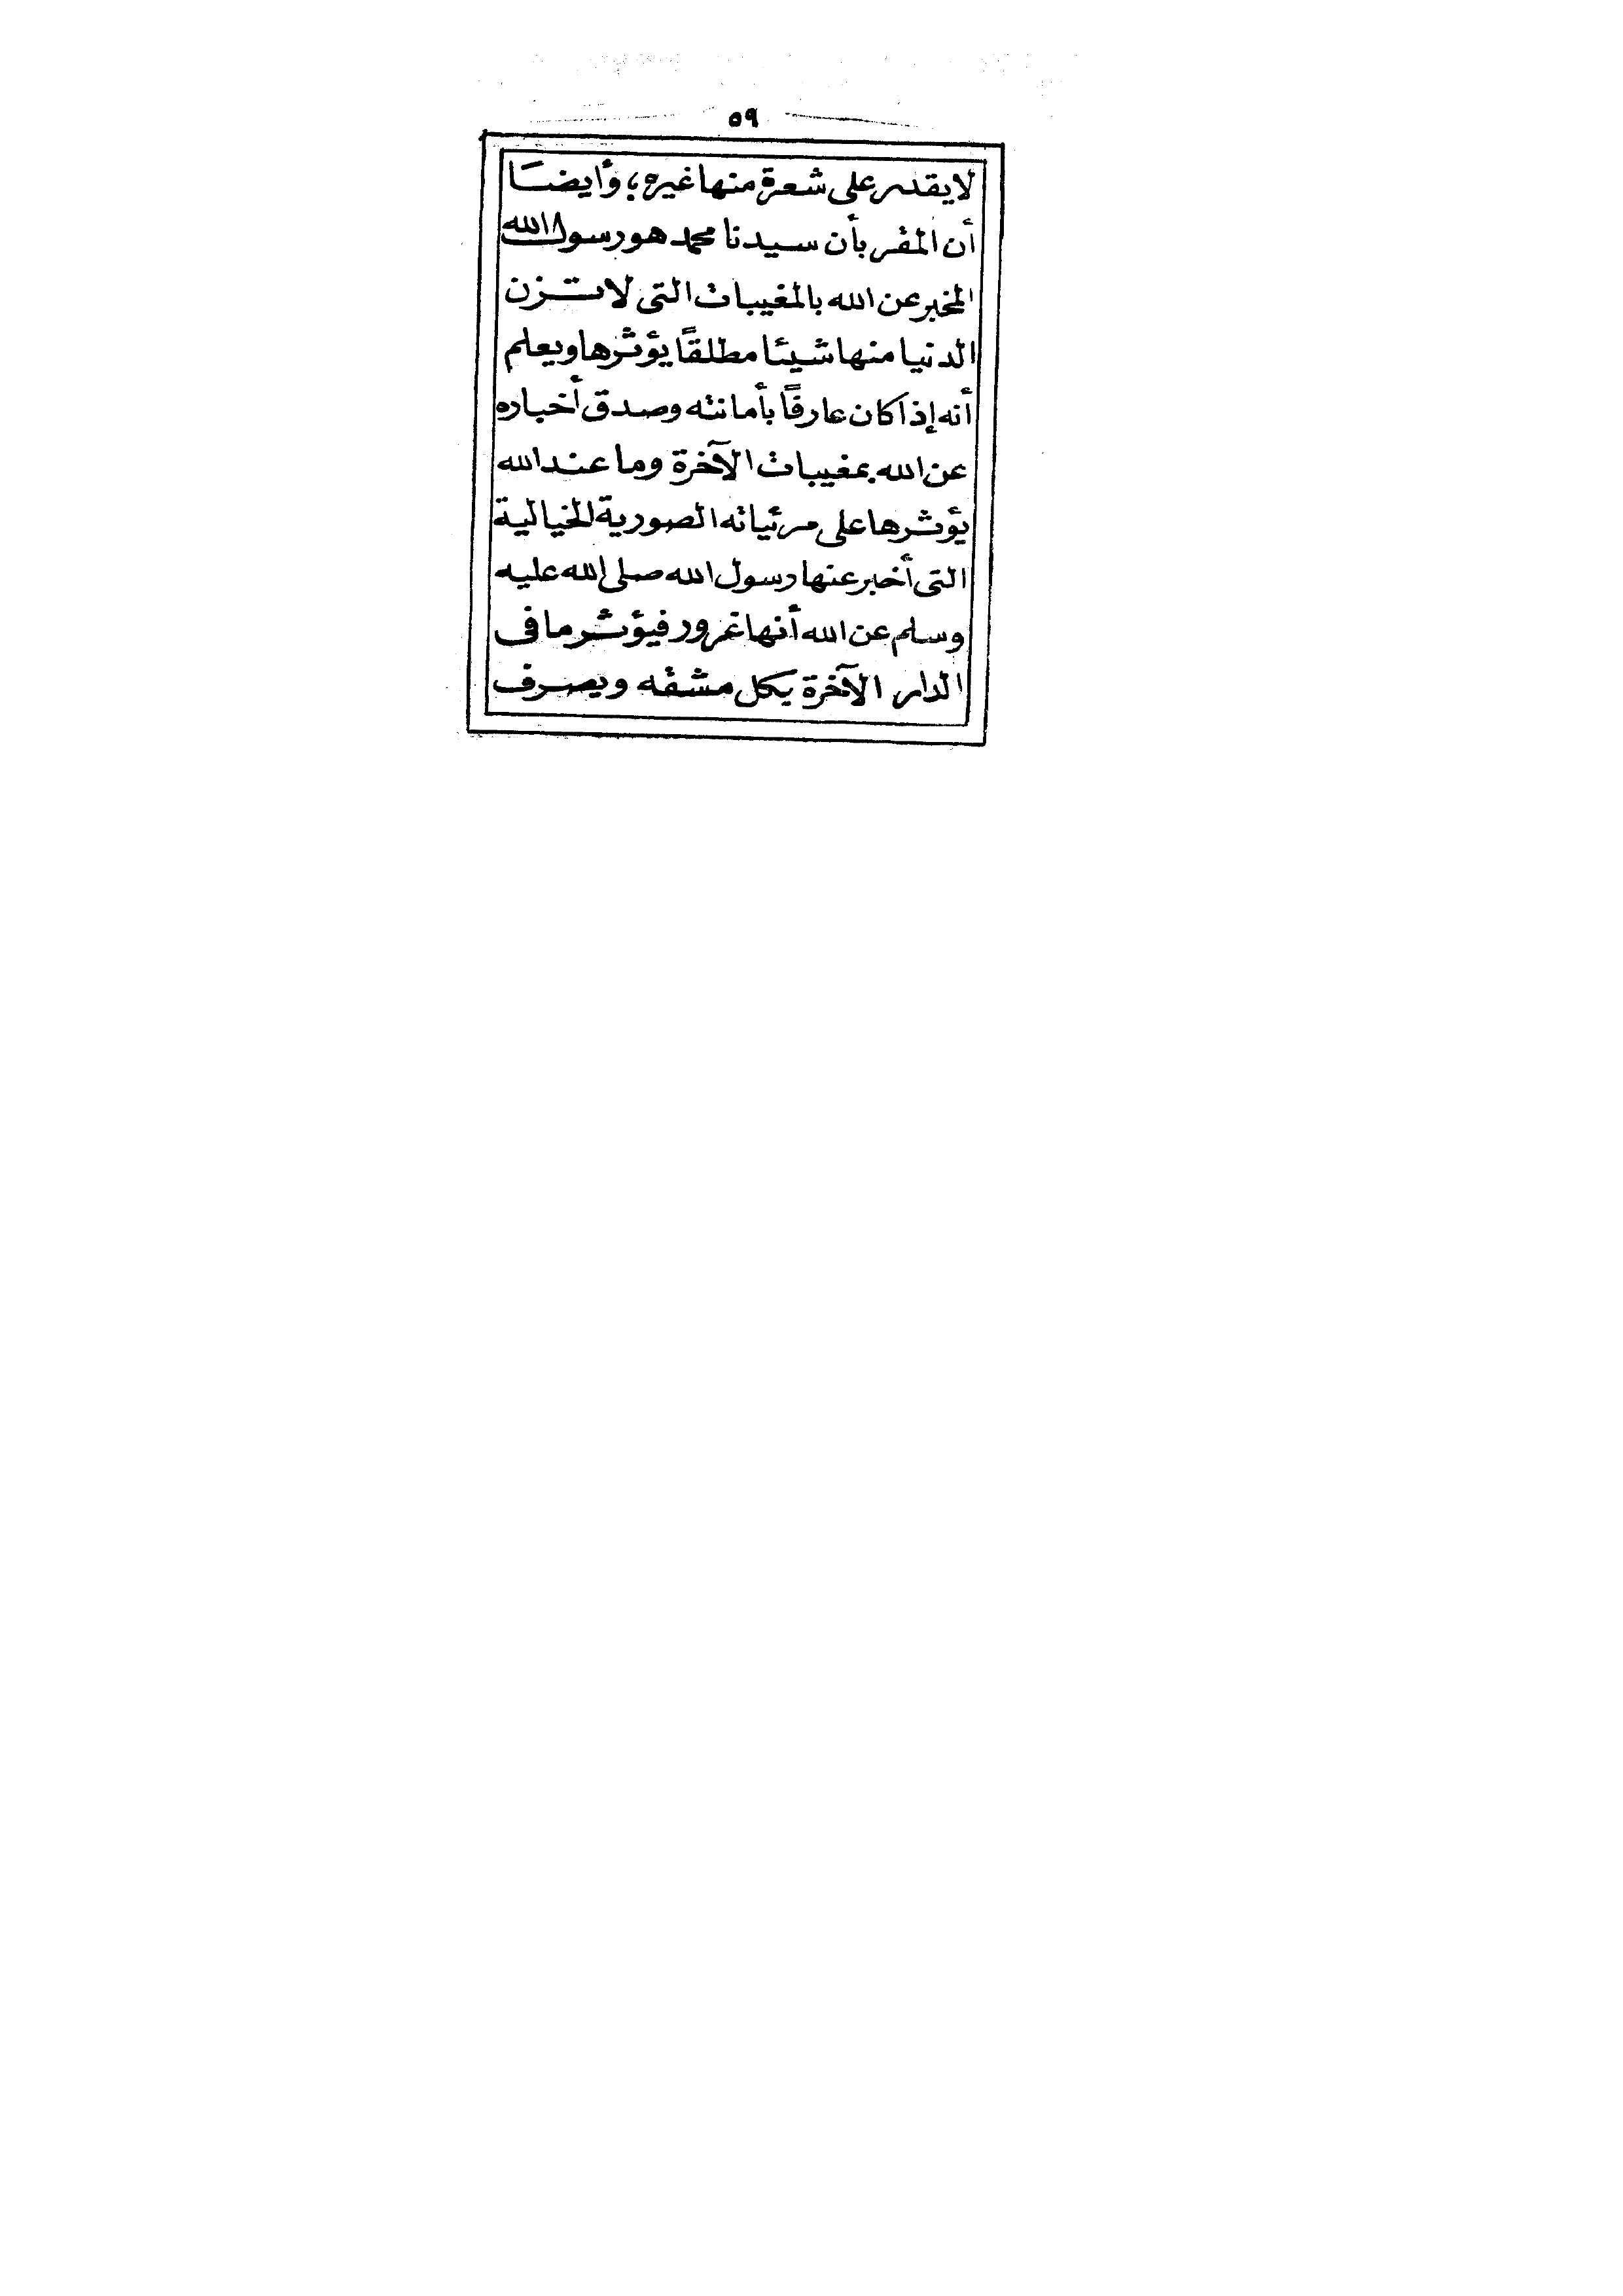 ٥٩
لا يقدر على شعرة منها غيره ؛ وأيضًا
أن المقر بأن سيدنا محمد هو رسول الله
المخبر عن الله بالمغيبات التى لا تزن
الدنيا منها شيئا مطلقًا يؤثرها ويعلم
أنه إذا كان عارفًا بأمانته وصدق أخباره
عن الله بمغيبات الآخرة وما عند الله
يؤثرها على مرئياته الصورية الخيالية
التى أخبر عنها رسول الله صلى الله عليه
وسلم عن الله أنها غرور فيؤثر ما فى
الدار الآخرة بكل مشقه ويصرف